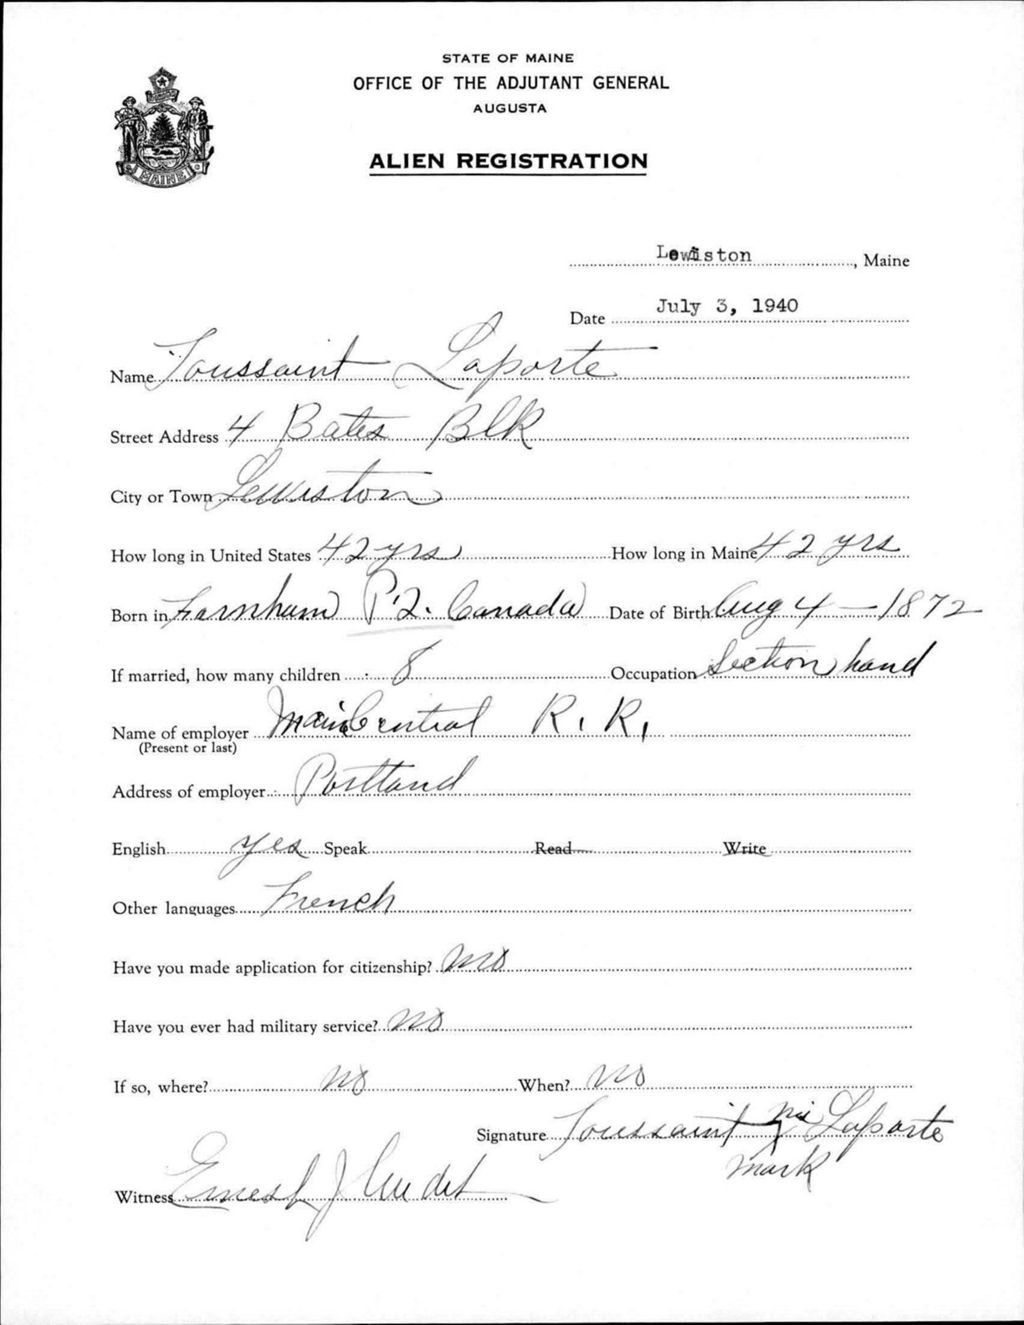 STATE OF MAINE
OFFICE OF THE ADJUTANT GENERAL
AUGUSTA
MAINE
ALIEN REGISTRATION
Lewiston, Maine
Date July 3, 1940
Name Toussaint Laporte
Street Address 4 Bates Blk
City or Town Lewiston
How long in United States 42 yrs How long in Maine 42 yrs
Born in Farnham P.Q. Canada Date of Birth Aug 4 - 1872
If married, how many children 8 Occupation Section hand
Name of employer Main Central R. R.
(Present or last)
Address of employer Portland
English yes Speak Read Write
Other languages French
Have you made application for citizenship? No
Have you ever had military service? No
If so, where? No When? No
Signature Toussaint his X Laporte
mark
Witness Ernest J